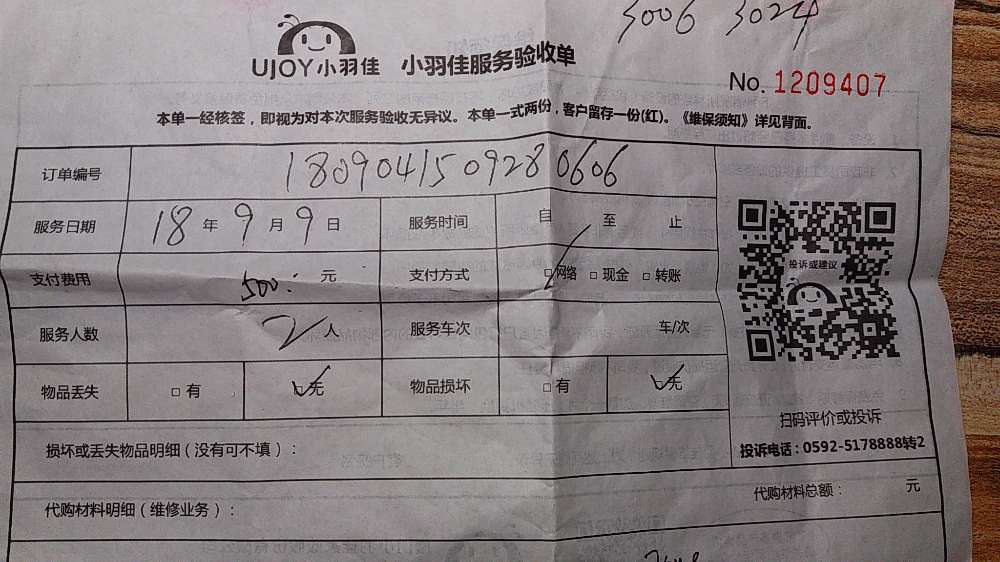 3006 3024
UJOY小羽佳 小羽佳服务验收单
No. 1209407
本单一经核签，即视为对本次服务验收无异议。本单一式两份，客户留存一份(红)。《维保须知》详见背面。
订单编号 180904150928 0606
服务日期 18 年 9 月 9 日 服务时间 自 至 止
支付费用 500. 元 支付方式 □网络 □现金 □转账
投诉或建议
服务人数 2 人 服务车次 车/次
物品丢失 □有 □无 物品损坏 □有 □无
扫码评价或投诉
投诉电话：0592-5178888转2
损坏或丢失物品明细（没有可不填）：
代购材料明细（维修业务）： 代购材料总额： 元